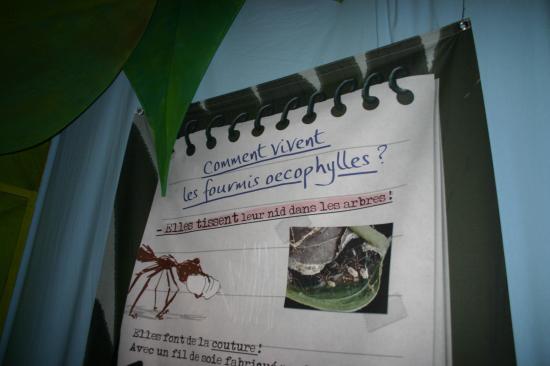 Comment vivent
les fourmis oecophylles ?
- Elles tissent leur nid dans les arbres :
Elles font de la couture :
Avec un fil de soie